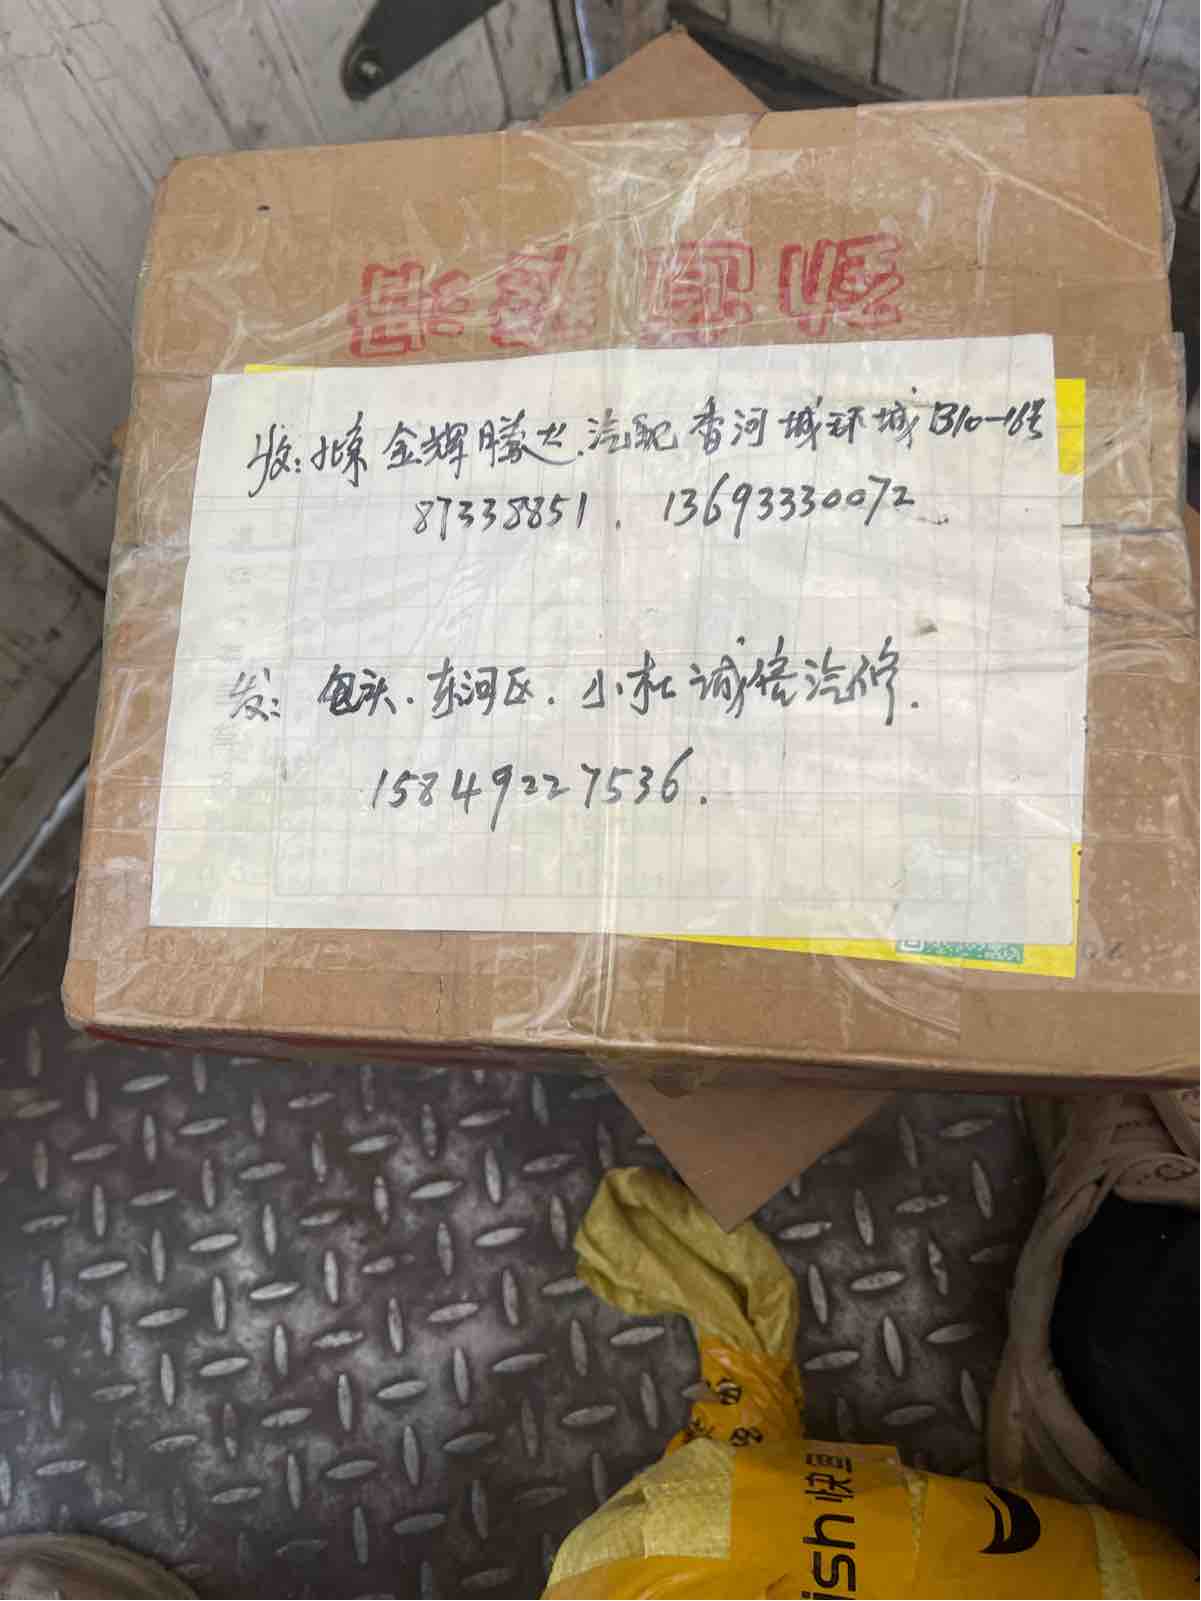 收:北京金辉腾达.汽配香河城环城B10-16号
87338851. 13693330072
发: 包头.东河区.小杜诚信汽修.
15849227536.
ish 快鱼